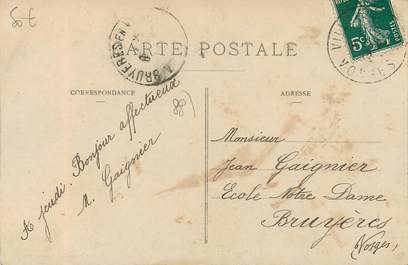 50€
CARTE POSTALE
BRUYERES EN
CORRESPONDANCE
ADRESSE
5c
A jeudi. Bonjour affectueux
M. Gaignier
Monsieur
Jean Gaignier
Ecole Notre Dame
Bruyères
(Vosges)